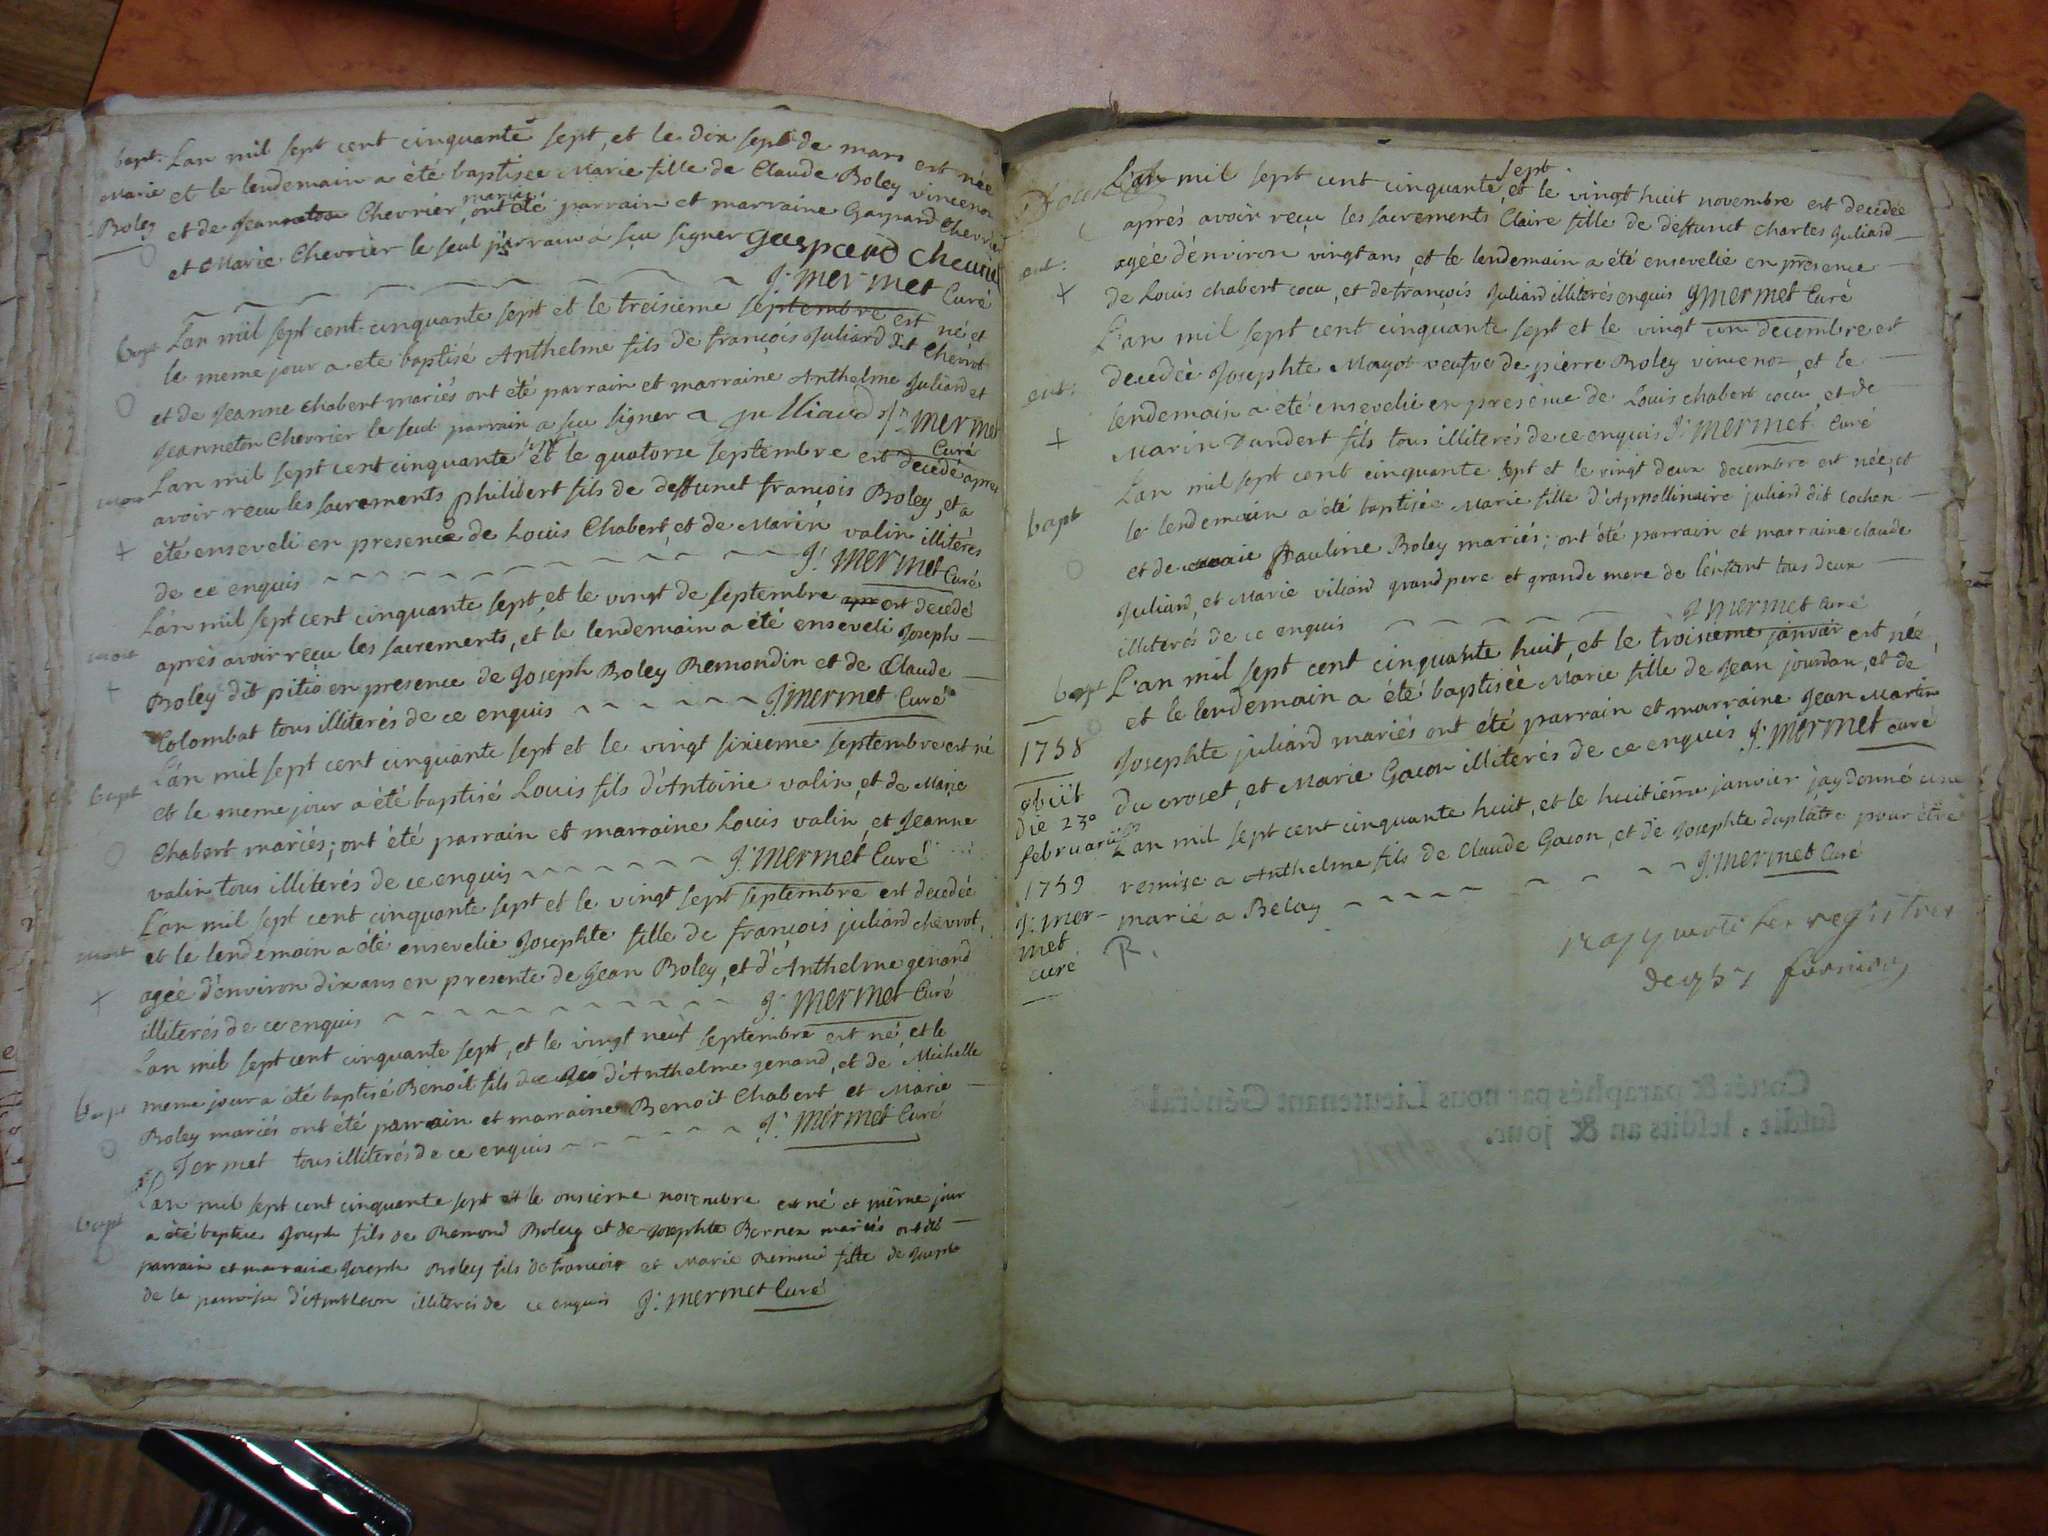 bapt. Lan mil sept cent cinquante sept, et le dix sept de mars est née
Marie et le lendemain a été baptisée Marie fille de Claude Boley vincenon
Boley et de Chevrier mariés, ont été parrain et marraine Gaspard Chevrier
et Marie Chevrier le seul parrain a scu signer gaspard cheurie
J: mermet Curé
bapt Lan mil sept cent cinquante sept et le treisieme septembre est né et
le meme jour a ete baptisé Anthelme fils de françois Juliard dit Chevrot
et de Jeanne Chabert mariés ont été parrain et marraine Anthelme Juliard et
Jeanneton Chevrier le seul parrain a scu signer a julliard J: mermet
Curé
mort Lan mil sept cent cinquante sept et le quatorze septembre est decedé apres
avoir recu les sacrements philibert fils de deffunct françois Boley, et a
+ été enseveli en presence de Louis Chabert, et de Marin valin illiterés
de ce enquis J: mermet Curé
Lan mil sept cent cinquante sept, et le vingt de septembre est decedé
mort aprés avoir reçu les sacrements, et le lendemain a été enseveli Joseph
+ Boley dit pitio en presence de Joseph Boley Remondin et de Claude
Colombat tous illiterés de ce enquis J: mermet Curé
Lan mil sept cent cinquante sept et le vingt sixieme septembre est né
bapt et le meme jour a été baptisé Louis fils d'Antoine valin, et de Marie
Chabert mariés; ont été parrain et marraine Louis valin, et Jeanne
valin tous illiterés de ce enquis J: mermet Curé
Lan mil sept cent cinquante sept et le vingt sept septembre est decedée
mort et le lendemain a été ensevelie Josephte fille de françois juliard chevrot,
+ agée d'environ dix ans en presente de Jean Boley, et d'Anthelme genand
illiterés de ce enquis J: mermet Curé
Lan mil sept cent cinquante sept, et le vingt neuf septembre est né, et le
bapt meme jour a été baptisé Benoit fils d'Anthelme genand, et de Michelle
Boley mariés ont été parrain et marraine Benoit Chabert et Marie
Jermet tous illiterés de ce enquis J: mermet Curé
Lan mil sept cent cinquante sept et le onsieme novembre est né et même jour
bapt a été baptise Joseph fils de Remond Boley et de Josephte Bernex mariés ont été
parrain et marraine Joseph Boley fils de francois et Marie Remond fille de Joseph
de la parroisse d'Ambleon illiterés de ce enquis J: mermet Curé
L'an mil sept cent cinquante sept, et le vingt huit novembre est decedée
aprés avoir reçu les sacrements Claire fille de deffunct Charles Juliard
ent: agée d'environ vingt ans, et le lendemain a été ensevelie en presence
+ de Louis chabert cocu, et de françois Juliard illiterés enquis J mermet Curé
L'an mil sept cent cinquante sept et le vingt un decembre est
ent: decedée Josephte Magot veufve de pierre Boley vincenon, et le
lendemain a été ensevelie en presence de Louis chabert cocu, et de
+ Marin Dandert fils tous illiterés de ce enquis J: mermet Curé
Lan mil sept cent cinquante sept et le vingt deux decembre est née, et
bapt le lendemain a été baptisée Marie fille d'Appollinaire juliard dit Cochon
et de Pauline Boley mariés; ont été parrain et marraine claude
Juliard, et Marie viliard grand pere et grande mere de l'enfant tous deux
illiterés de ce enquis J mermet Curé
bapt L'an mil sept cent cinquante huit, et le troisieme janvier est née,
et le lendemain a été baptisée Marie fille de Jean jourdan, et de
1758 Josephte juliard mariés ont été parrain et marraine Jean Martin
du croset, et Marie Gacon illiterés de ce enquis J: mermet curé
obiit
die 23a
februarii
1759
J: mer-
met
curé
Lan mil sept cent cinquante huit, et le huitiéme janvier jay donné une
remise a Anthelme fils de Claude Gacon, et de Josephte duplâtre pour être
marié a Belay J: mermet Curé
R.
les registres
de 1757
Cottés & paraphés par nous Lieutenant Général
susdit, lesdits an & jour.